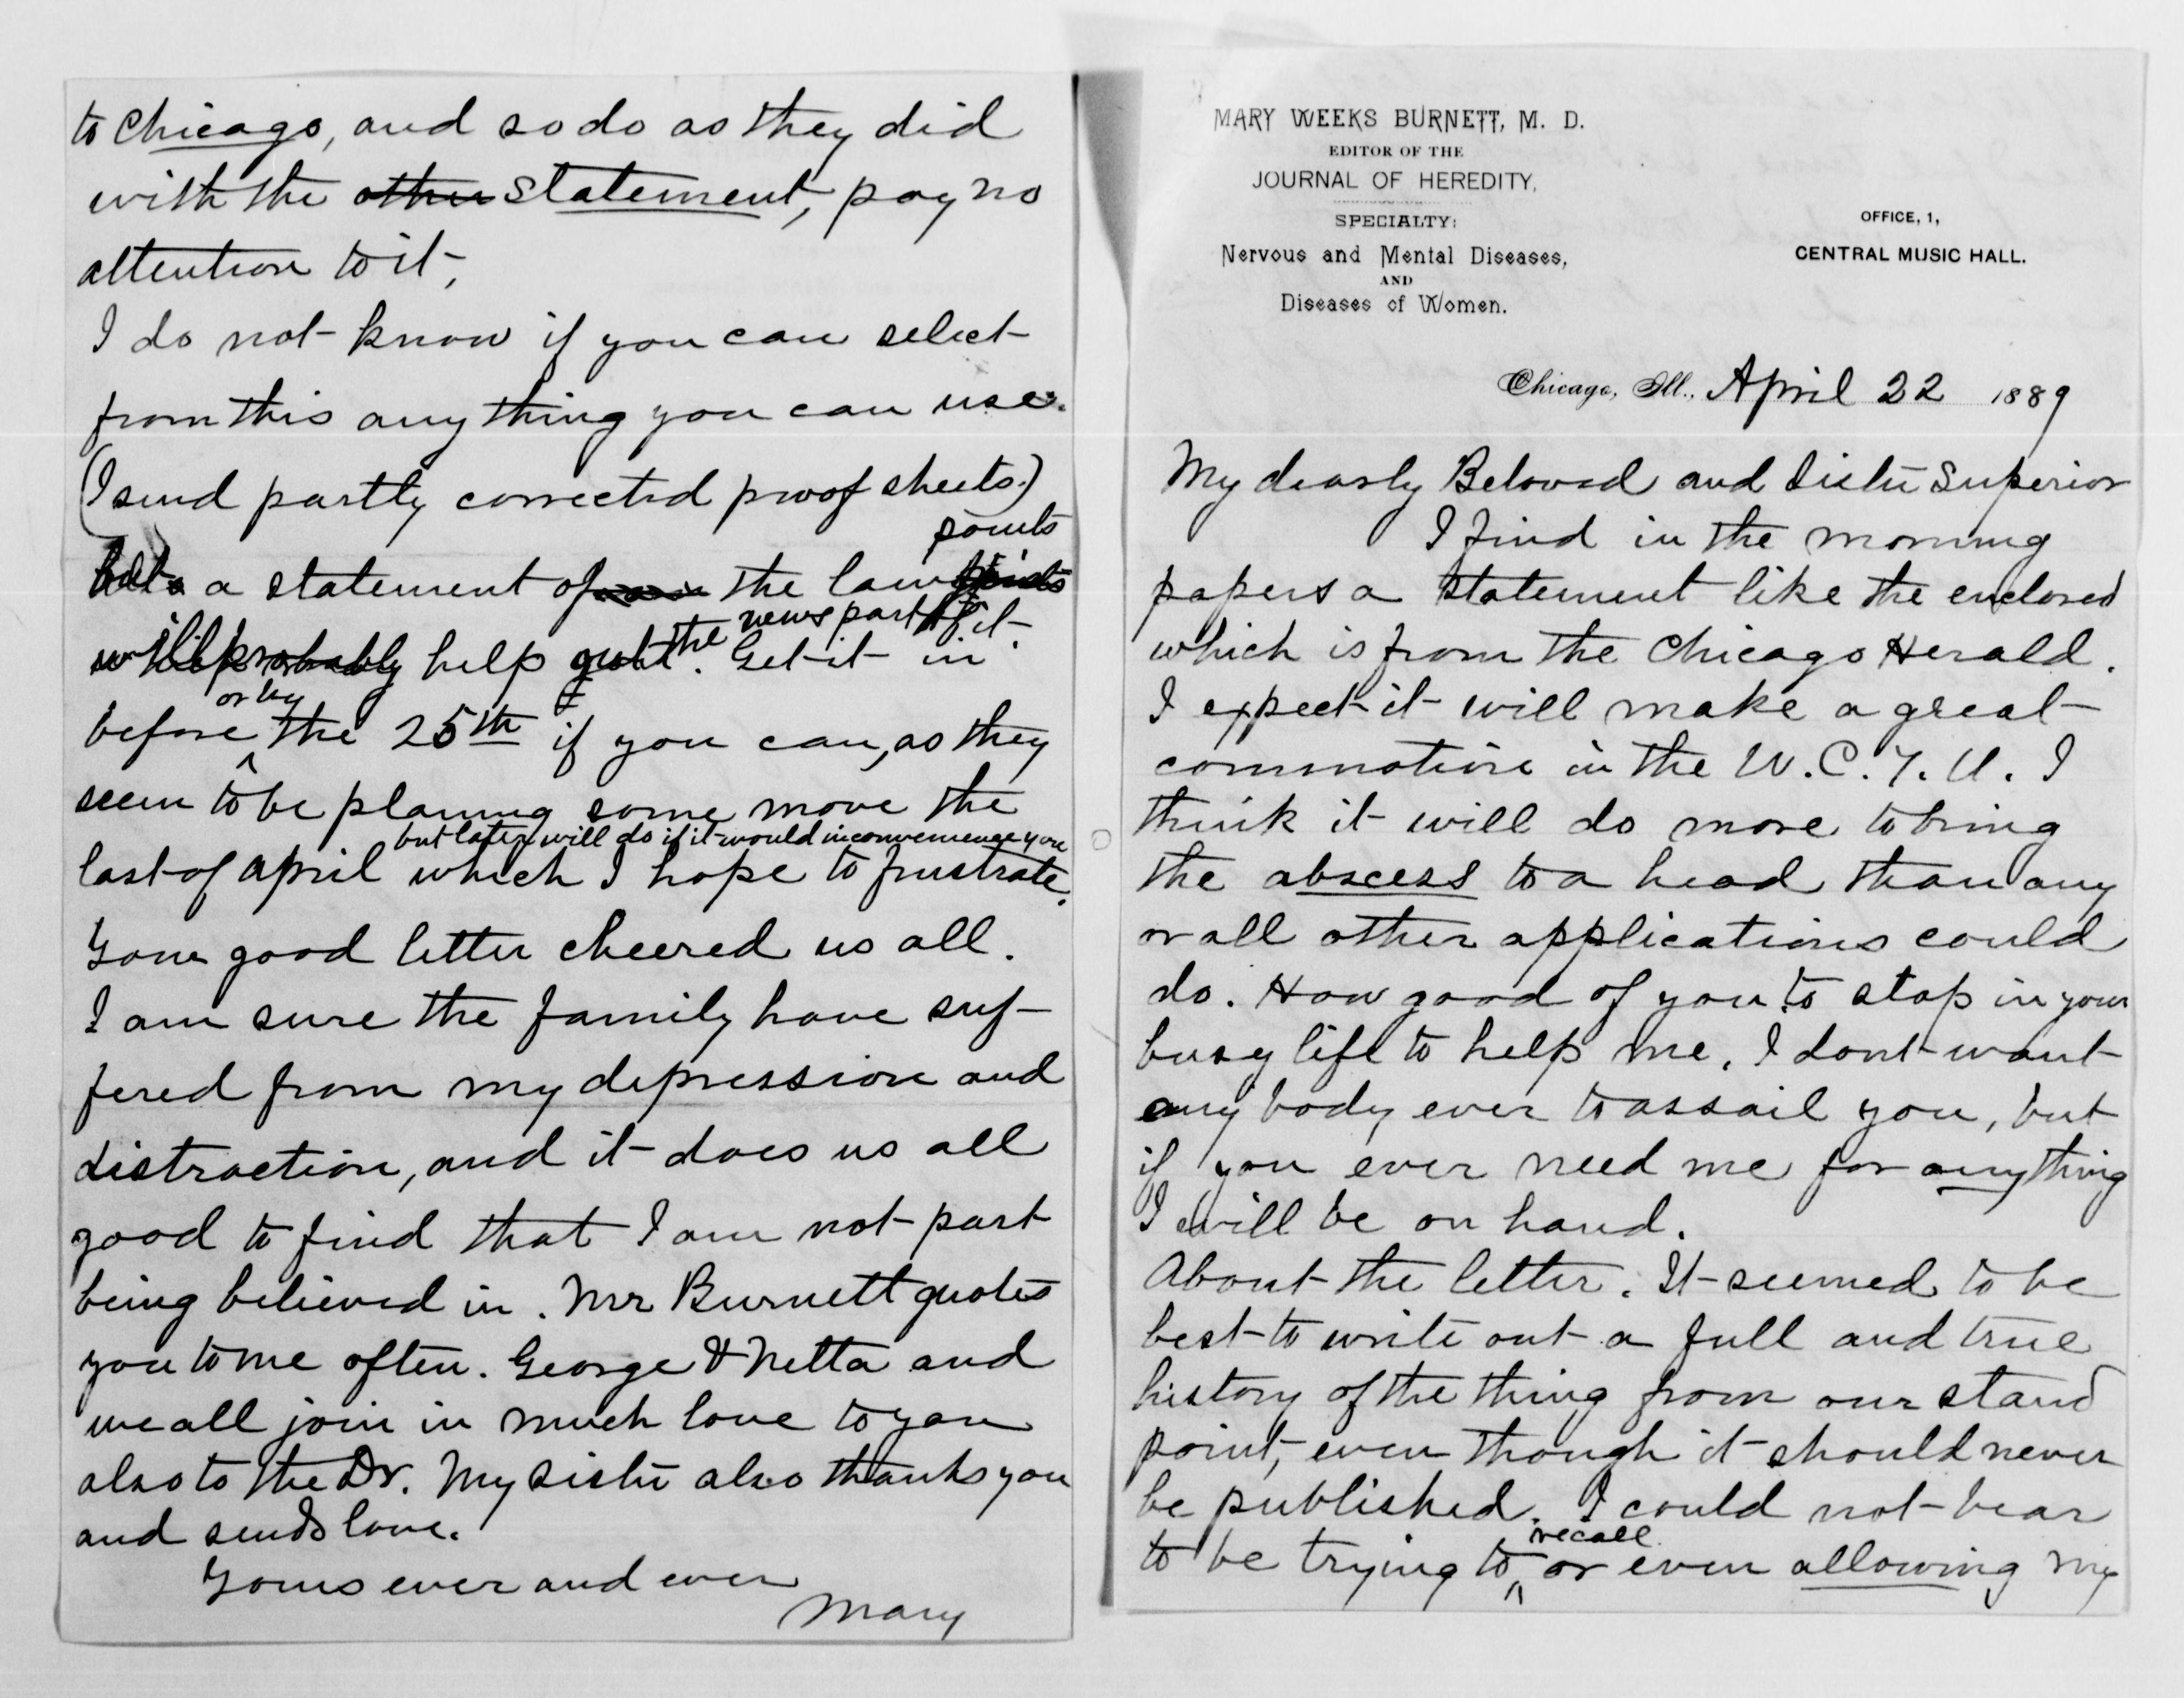 to Chicago, and so do as they did
with the other statement, pay no
attention to it,
I do not know if you can select
from this any thing you can use.
(I send partly corrected proof sheets.)
points
a statement of the law points
the news part of it
will probably help. Get it in
or by
before the 25th if you can, as they
seem to be planing some move the
but later will do if it would inconvenience you
last of April which I hope to frustrate.
Your good letter cheered us all.
I am sure the family have suf-
fered from my depression and
distraction, and it does us all
good to find that I am not past
being believed in. Mr Burnett quotes
you to me often. George & Netta and
we all join in much love to you
also to the Dr. My sister also thanks you
and sends love.
Yours ever and ever
Mary
MARY WEEKS BURNETT, M. D.
EDITOR OF THE
JOURNAL OF HEREDITY,
SPECIALTY:
Nervous and Mental Diseases,
AND
Diseases of Women.
OFFICE, 1,
CENTRAL MUSIC HALL.
Chicago, Ill., April 22 1889
My dearly Beloved and Sister Superior
I find in the morning
papers a statement like the enclosed
which is from the Chicago Herald.
I expect it will make a great
commotion in the W.C.T.U. I
think it will do more to bring
the abscess to a head than any
or all other applications could
do. How good of you to stop in your
busy life to help me. I dont want
any body ever to assail you, but
if you ever need me for anything
I will be on hand.
About the letter. It seemed to be
best to write out a full and true
history of the thing from our stand
point, even though it should never
be published. I could not bear
recall
to be trying to, or even allowing my